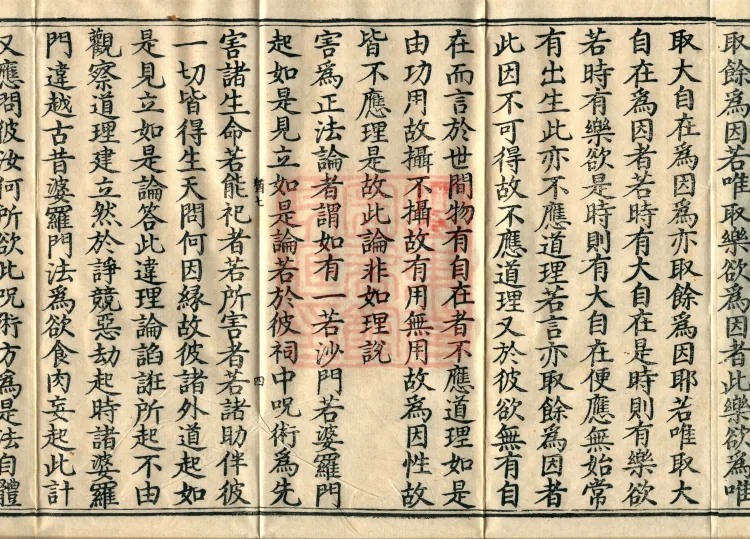 取餘爲因若唯取樂欲爲因者此樂欲爲唯
取大自在爲因爲亦取餘爲因耶若唯取大
自在爲因者若時有大自在是時則有樂欲
若時有樂欲是時則有大自在便應無始常
有出生此亦不應道理若言亦取餘爲因者
此因不可得故不應道理又於彼欲無有自
在而言於世間物有自在者不應道理如是
由功用故攝不攝故有用無用故爲因性故
皆不應理是故此論非如理說
害爲正法論者謂如有一若沙門若婆羅門
起如是見立如是論若於彼祠中呪術爲先
害諸生命若能祀者若所害者若諸助伴彼
一切皆得生天問何因緣故彼諸外道起如
是見立如是論答此違理論諂誑所起不由
觀察道理建立然於諍競惡劫起時諸婆羅
門違越古昔婆羅門法爲欲食肉妄起此計
又應問彼汝何所欲此呪術方爲是法自體
七
四